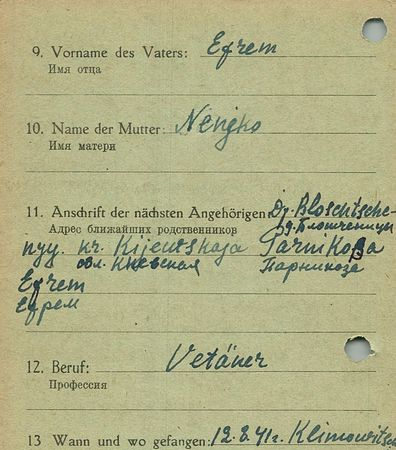 9. Vorname des Vaters: Efrem
Имя отца
10. Name der Mutter: Nenjko
Имя матери
11. Anschrift der nächsten Angehörigen Df. Bloschtsche-
Адрес ближайших родственников
kr. Kijewskaja Parnikosa
обл. Киевская Парникоза
Efrem
Ефрем
12. Beruf: Vetäner
Профессия
13 Wann und wo gefangen: 12.8.41г. Klimowitsch